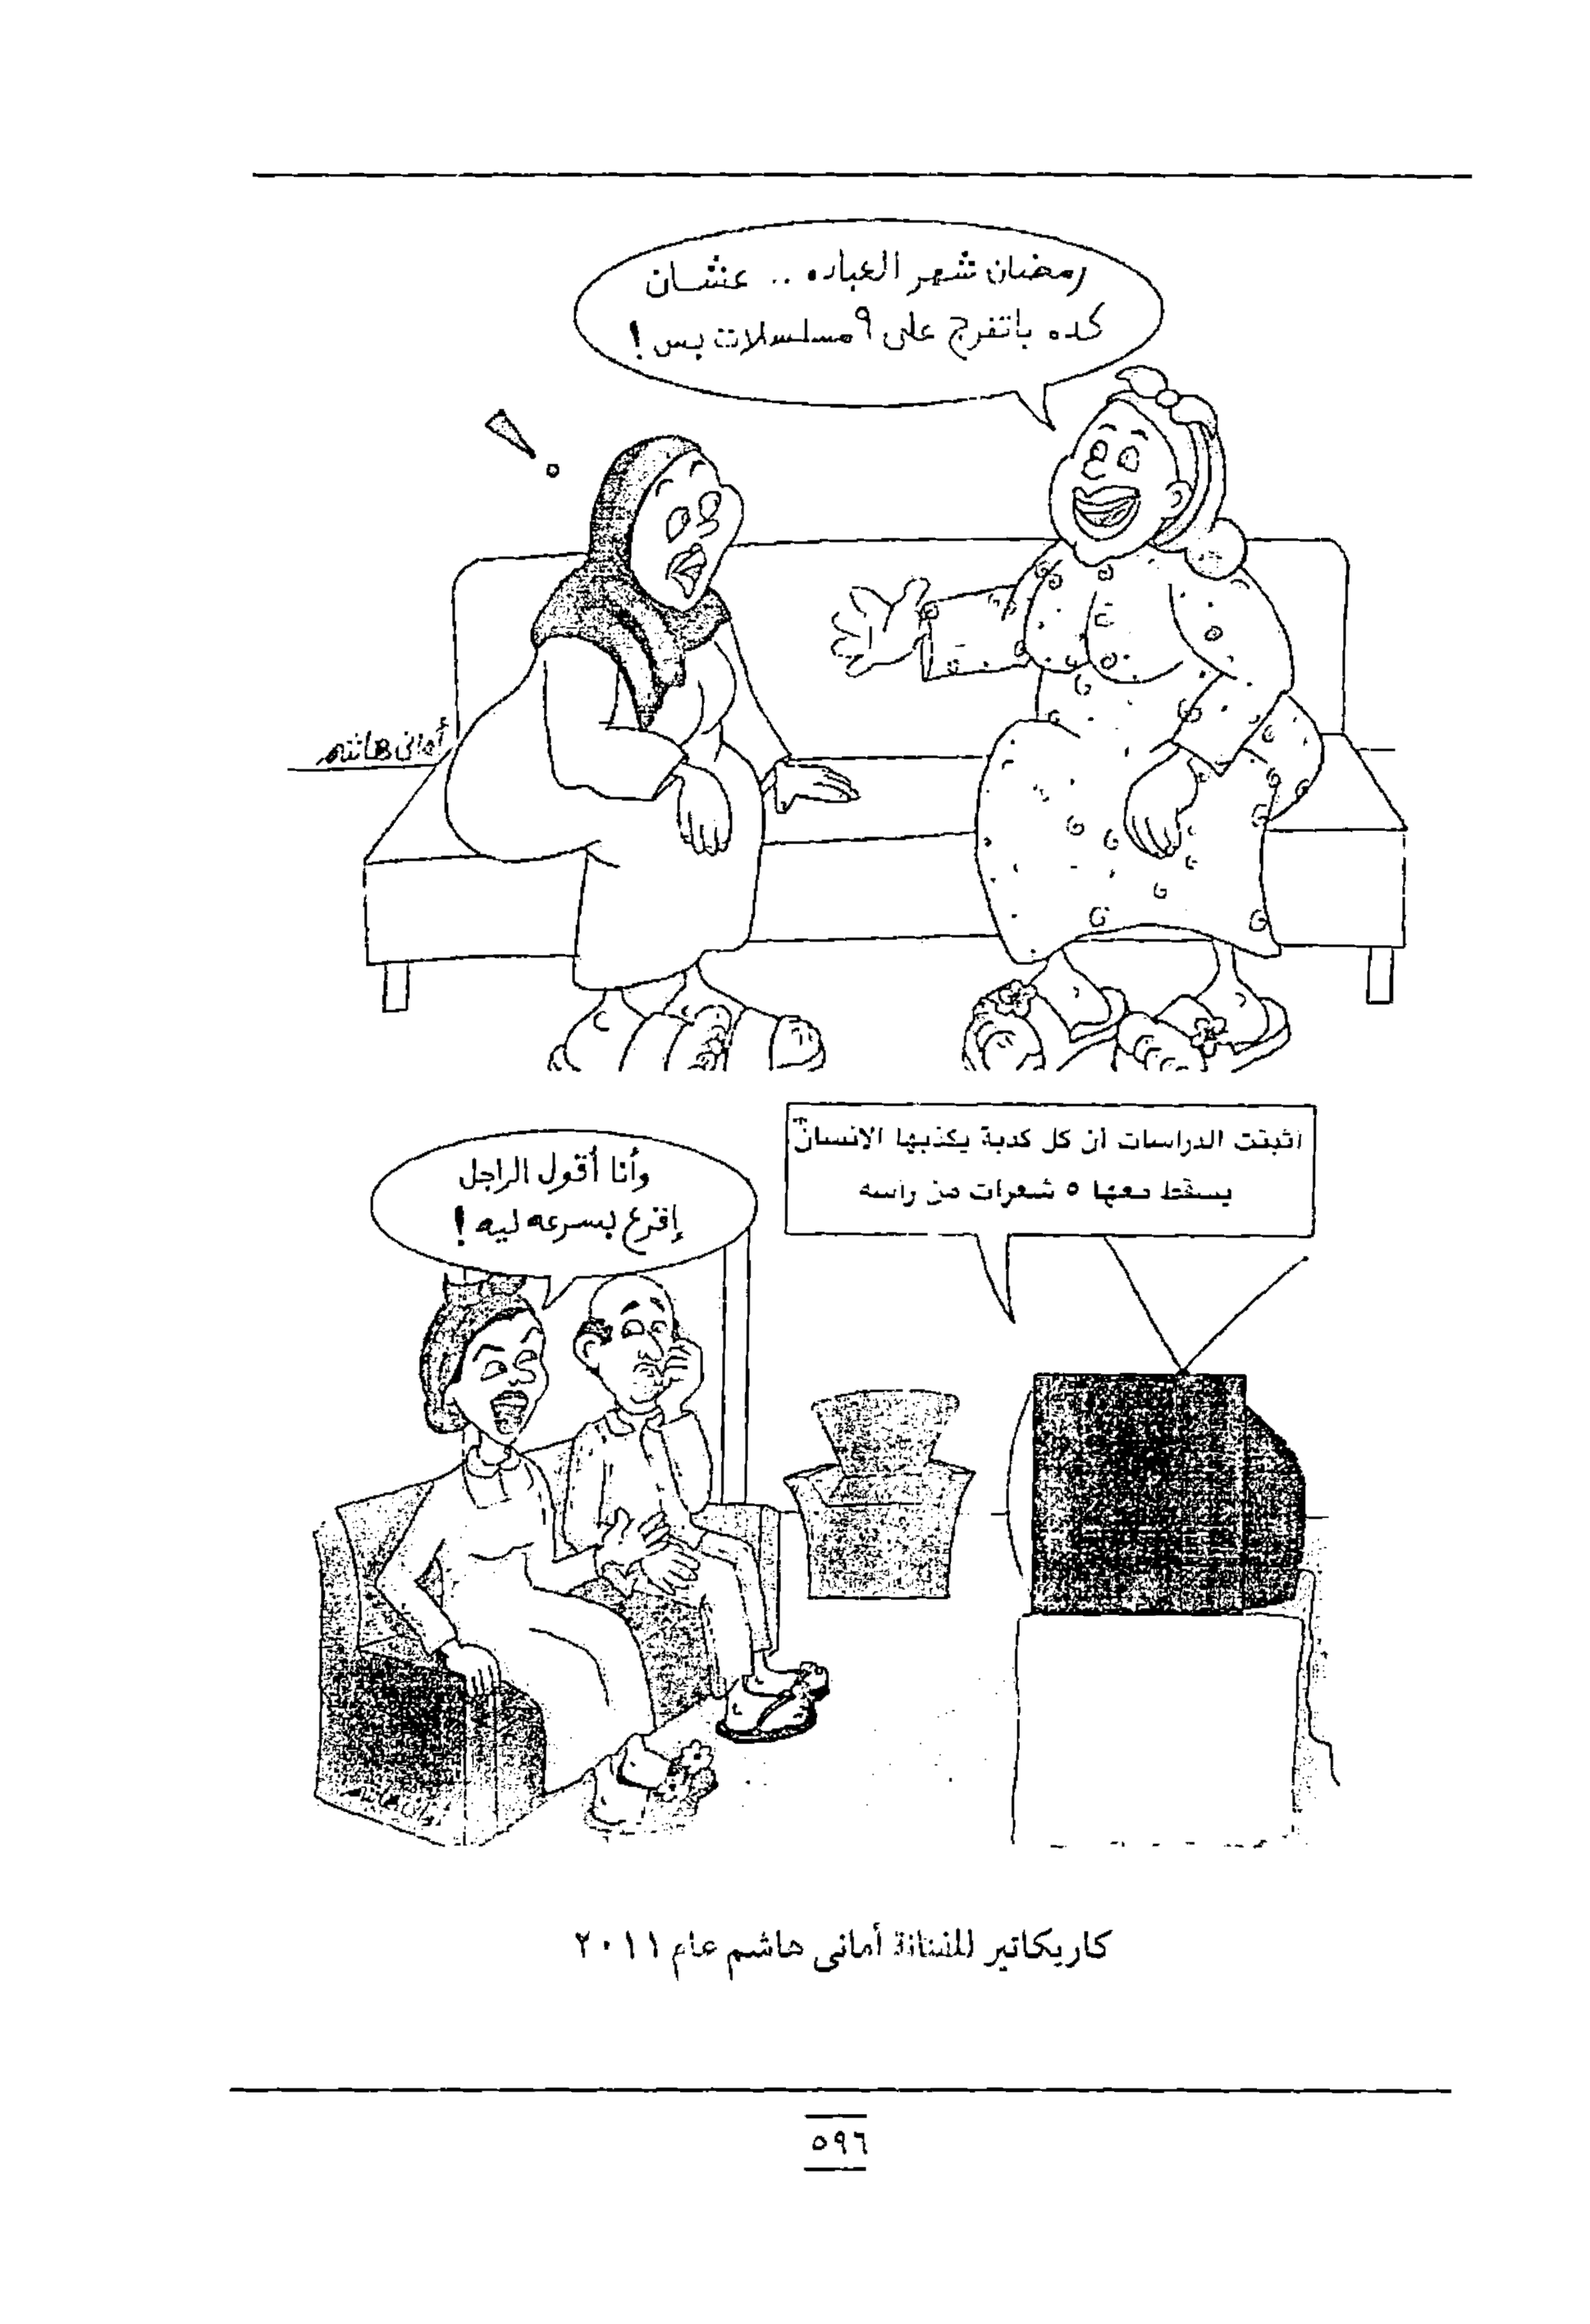 رمضان شهر العباده .. عشان
كده باتفرج على ٩ مسلسلات بس !
أمانى هاشم
أثبتت الدراسات أن كل كدبة يكذبها الانسان
يسقط معها ٥ شعرات من رأسه
وأنا أقول الراجل
إقرع بسرعه ليه !
أمانى هاشم
كاريكاتير للفنانة أمانى هاشم عام ٢٠١١
٥٩٦